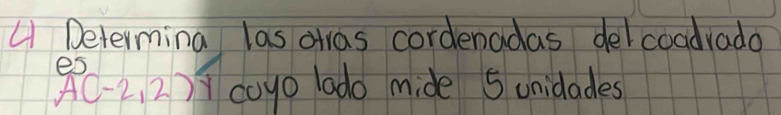 4 Determina las otras cordenadas del coadrado
es
A(-2,2) Y coyo lado mide 5 unidades